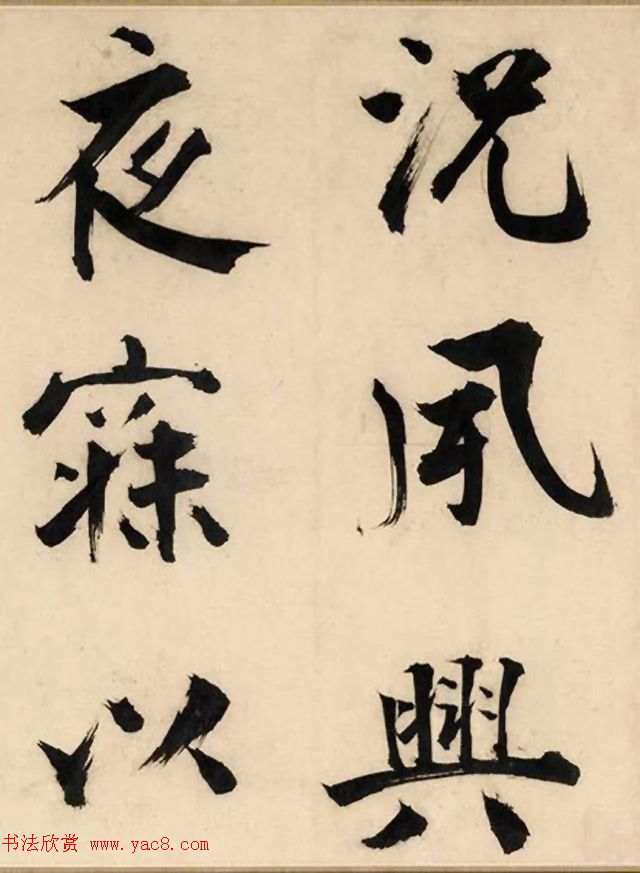 况夙興
夜寐以
书法欣赏 www.yac8.com